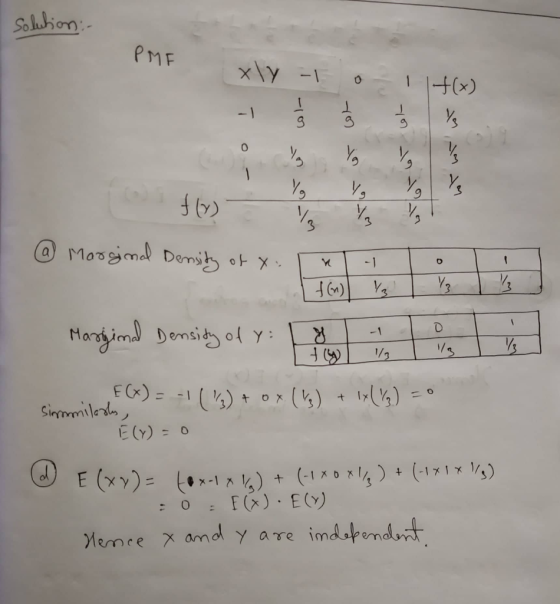 Solution:-
PMF
X\Y -1 0 1 f(x)
-1 1/9 1/9 1/9 1/3
0 1/9 1/9 1/9 1/3
1 1/9 1/9 1/9 1/3
f(Y) 1/3 1/3 1/3
(a) Marginal Density of X:
x -1 0 1
f(x) 1/3 1/3 1/3
Marginal Density of Y:
y -1 0 1
f(y) 1/3 1/3 1/3
E(X) = -1(1/3) + 0×(1/3) + 1×(1/3) = 0
Simmilarly,
E(Y) = 0
(d) E(XY) = ( x-1 x 1/3) + (-1 x 0 x 1/3) + (-1 x 1 x 1/3)
= 0 = E(X) · E(Y)
Hence X and Y are independent.